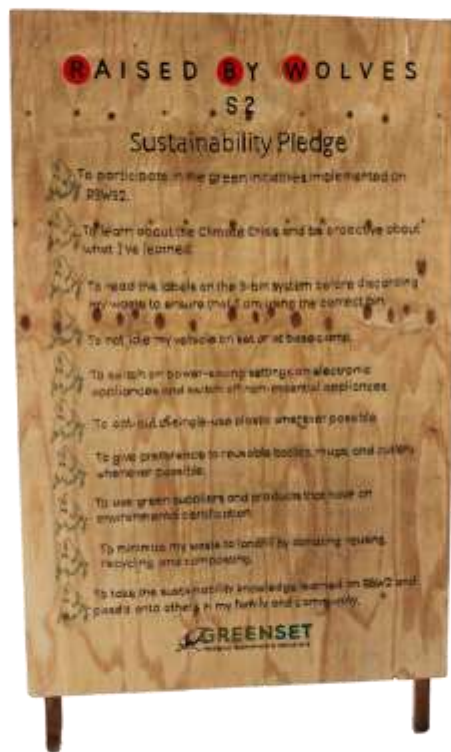 RAISED BY WOLVES
S2
Sustainability Pledge
To participate in the green initiatives implemented on
RBWS2.
To learn about the Climate Crisis and be proactive about
what I've learned.
To read the labels on the 3-bin system before disposing
my waste to ensure that I am using the correct bin.
To not idle my vehicle on set or at basecamp.
To switch on power-saving settings on electronic
appliances and switch off non-essential appliances.
To opt-out of single-use plastic wherever possible.
To give preference to reusable bottles, mugs, and cutlery
whenever possible.
To use green suppliers and products that have an
environmental certification.
To minimize my waste to landfill by donating, reusing,
recycling, and composting.
To take the sustainability knowledge learned on RBW2 and
pass it onto others in my family and community.
GREENSET